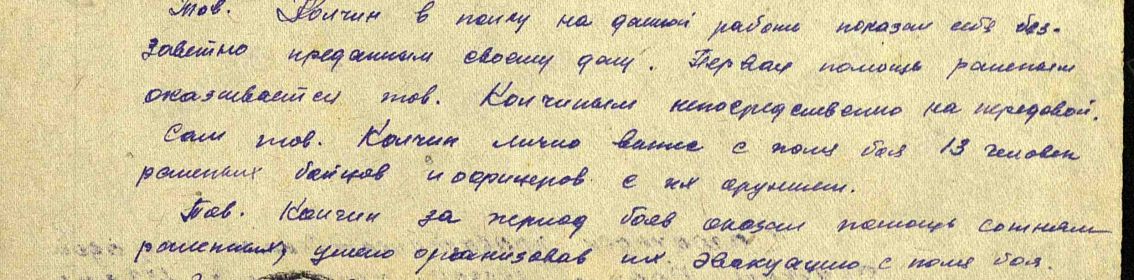 Тов. Колчин в полку на данной работе показал себя без-
заветно преданным своему делу. Первая помощь раненым
оказывается тов. Колчиным непосредственно на передовой.
Сам тов. Колчин лично вынес с поля боя 13 человек
раненых бойцов и офицеров с их оружием.
Тов. Колчин за период боев оказал помощь сотням
раненных, умело организовав их эвакуацию с поля боя